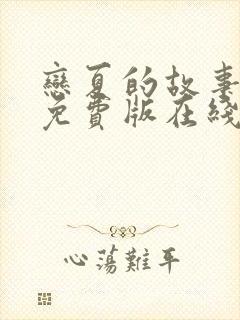 戀夏的故事
免費版在綫
心蕩難平